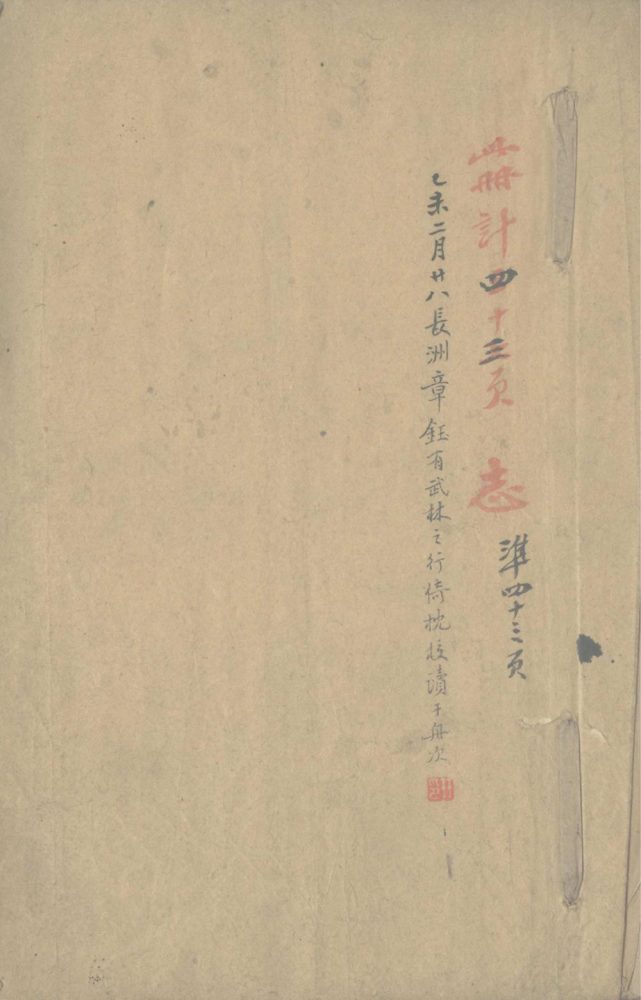 此冊計四十三頁 志
準四十三頁
乙未二月廿八長洲章鈺有武林之行倚枕校讀于舟次